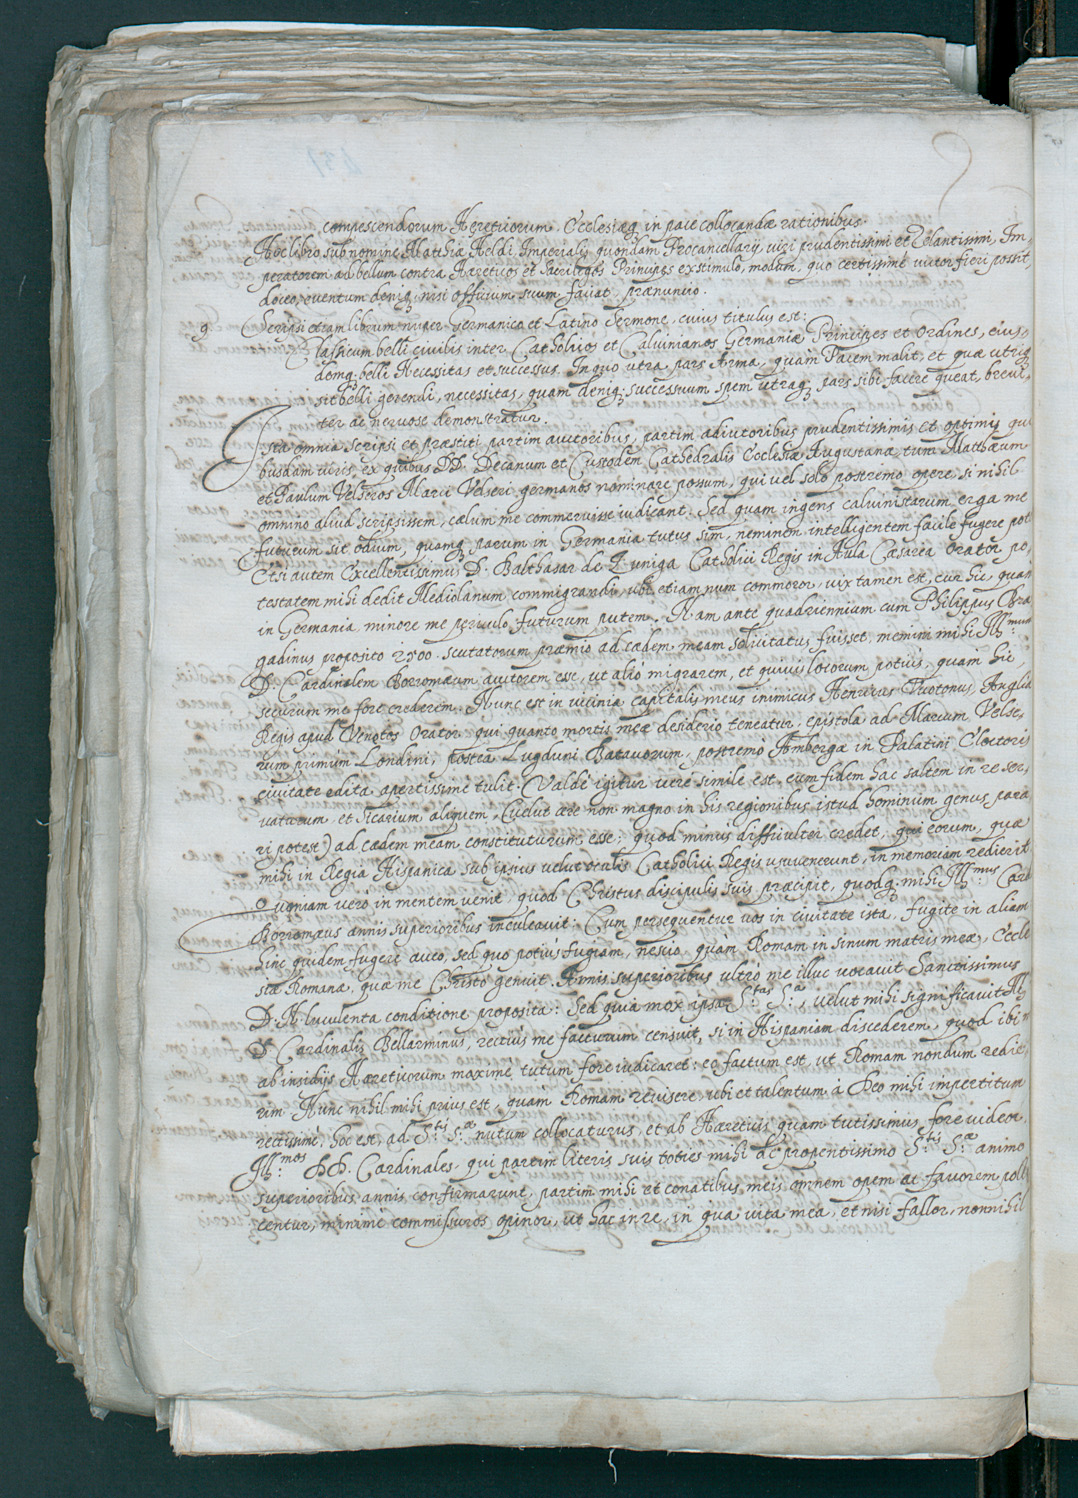 compescendorum Hæreticorum, Ecclesiæq; in pace collocandæ rationibus.
Hoc libro sub nomine Matthiæ Heldi Imperialis quondam Procancellarij viri prudentissimi et Zelantissimi, Im-
peratorem ad bellum contra Hæreticos et Sacrilegos Principes exstimulo, modum, quo certissimè victor fieri possit,
doceo, eventum deniq; nisi officium suum faciat prænuncio.
9 Scripsi etiam librum nuper Germanico et Latino Sermone, cuius titulus est:
Classicum belli civilis inter Catholicos et Calvinianos Germaniæ Principes et Ordines, eius-
demq; belli Necessitas et successus. In quo utra pars Arma, quàm Pacem malit, et quæ utriq;
sit belli gerendi, necessitas, quam deniq; successuum spem utraq; pars sibi facere queat, brevi-
ter ac nervose demonstratur.
Ista omnia scripsi et præstiti partim auctoribus, partim adiutoribus prudentissimis et optimis qui
busdam viris, ex quibus DD. Decanum et Custodem Cathedralis Ecclesiæ Augustanæ, tum Matthæum
et Paulum Velseros Marci Velseri germanos nominare possum, qui vel solo postremo opere, si nihil
omnino aliud scripsissem, cælum me commeruisse iudicant. Sed quam ingens calvinistarum erga me
futurum sit odium, quamq; parum in Germania tutus sim, neminem intelligentem facile fugere pot
Etsi autem Excellentissimus D. Balthasar de Zuniga Catholici Regis in Aula Cæsarea Orator po-
testatem mihi dedit Mediolanum commigrandi, ubi etiamnum commoror, vix tamen est, cur hic, quàm
in Germania minore me periculo futurum putem. Nam ante quadriennium cum Philippus Bra
gadinus proposito 2500. scutatorum præmio ad cædem meam solicitatus fuisset, memini mihi Ill.mum
D. Cardinalem Borromæum auctorem esse, ut aliò migrarem, et quivis locorum potius, quàm hic
securum me fore crederem. Nunc est in vicinia capitalis meus inimicus Henricus Vuotonus Angliæ
Regis apud Venetos Orator, qui quanto mortis meæ desiderio teneatur, epistola ad Marcum Velse-
rum primùm Londini, postea Lugduni Batavorum, postremò Ambergæ in Palatini Electoris
civitate edita apertissime tulit. Valde igitur vere simile est, eum fidem hac saltem in re ser-
vaturum, et Sicarium aliquem, (velut ære non magno in his regionibus istud hominum genus para
ri potest) ad cædem meam constituturum esse; quod minus difficulter credet, qui eorum, quæ
mihi in Regia Hispanica sub ipsius velut oculis Catholici Regis evenerunt, in memoriam redierit
Quoniam verò in mentem venit, quod Christus discipulis suis præcipit, quodq; mihi Ill.mus Card
Borromæus annis superioribus inculcavit: Cum persequentur vos in civitate ista, fugite in aliam
hinc quidem fugere aveo, sed quo potius fugiam, nescio, quàm Romam in sinum matris meæ, Eccle
siæ Romanæ, quæ me Christo genuit. Annis superioribus ultrò me illuc vocavit Sanctissimus
D. N. luculenta conditione proposita: Sed quia mox ipsa S.tas S.a, velut mihi significavit Ill
D. Cardinalis Bellarminus, rectius me facturum censuit, si in Hispaniam discederem, quod ibi
ab insidijs Hæreticorum maximè tutum fore iudicaret: eo factum est, ut Romam nondum redie-
rim. Nunc nihil mihi prius est, quam Romam revisere, ubi et talentum à Deo mihi impertitum
rectissimè, hoc est, ad S.tis S.æ nutum collocaturus, et ab Hæreticis quam tutissimus fore videor.
Ill.mos DD. Cardinales, qui partim literis suis toties mihi de propentissimo S.tis S.æ animo
superioribus annis confirmarunt, partim mihi et conatibus meis omnem opem ac favorem polli
centur, minimè commissuros opinor, ut hac in re, in qua vita mea, et nisi fallor, nonnihil